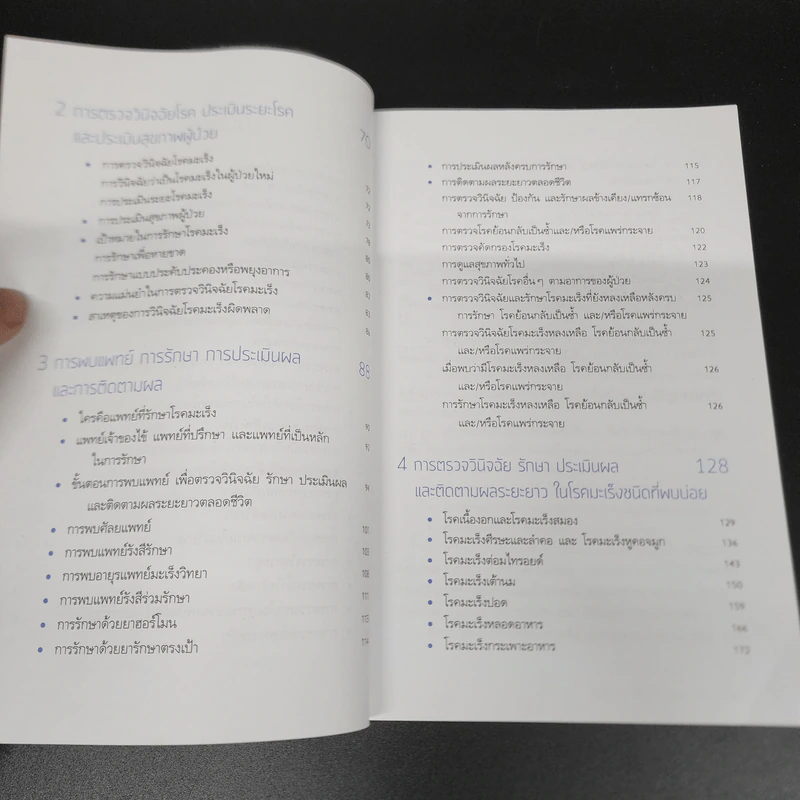 2 การตรวจวินิจฉัยโรค ประเมินระยะโรค 70
และประเมินสุขภาพผู้ป่วย
• การตรวจวินิจฉัยโรคมะเร็ง
การวินิจฉัยว่าเป็นโรคมะเร็งในผู้ป่วยใหม่
การประเมินระยะโรคมะเร็ง
• การประเมินสุขภาพผู้ป่วย
• เป้าหมายในการรักษาโรคมะเร็ง
การรักษาเพื่อหายขาด
การรักษาแบบประคับประคองหรือพยุงอาการ
• ความแม่นยำในการตรวจวินิจฉัยโรคมะเร็ง
• สาเหตุของการวินิจฉัยโรคมะเร็งผิดพลาด
3 การพบแพทย์ การรักษา การประเมินผล 88
และการติดตามผล
• ใครคือแพทย์ที่รักษาโรคมะเร็ง
• แพทย์เจ้าของไข้ แพทย์ที่ปรึกษา และแพทย์ที่เป็นหลัก
ในการรักษา
• ขั้นตอนการพบแพทย์ เพื่อตรวจวินิจฉัย รักษา ประเมินผล 94
และติดตามผลระยะยาวตลอดชีวิต
• การพบศัลยแพทย์ 101
• การพบแพทย์รังสีรักษา
• การพบอายุรแพทย์มะเร็งวิทยา 108
• การพบแพทย์รังสีร่วมรักษา 111
• การรักษาด้วยยาฮอร์โมน 113
• การรักษาด้วยยารักษาตรงเป้า 114
• การประเมินผลหลังครบการรักษา 115
• การติดตามผลระยะยาวตลอดชีวิต 117
การตรวจวินิจฉัย ป้องกัน และรักษาผลข้างเคียง/แทรกซ้อน 118
จากการรักษา
การตรวจโรคย้อนกลับเป็นซ้ำและ/หรือโรคแพร่กระจาย 120
การตรวจคัดกรองโรคมะเร็ง 122
การดูแลสุขภาพทั่วไป 123
การตรวจวินิจฉัยโรคอื่นๆ ตามอาการของผู้ป่วย 124
• การตรวจวินิจฉัยและรักษาโรคมะเร็งที่ยังหลงเหลือหลังครบ 125
การรักษา โรคย้อนกลับเป็นซ้ำ และ/หรือโรคแพร่กระจาย
การตรวจวินิจฉัยโรคมะเร็งหลงเหลือ โรคย้อนกลับเป็นซ้ำ 125
และ/หรือโรคแพร่กระจาย
เมื่อพบว่ามีโรคมะเร็งหลงเหลือ โรคย้อนกลับเป็นซ้ำ 126
และ/หรือโรคแพร่กระจาย
การรักษาโรคมะเร็งหลงเหลือ โรคย้อนกลับเป็นซ้ำ 126
และ/หรือโรคแพร่กระจาย
4 การตรวจวินิจฉัย รักษา ประเมินผล 128
และติดตามผลระยะยาว ในโรคมะเร็งชนิดที่พบบ่อย
• โรคเนื้องอกและโรคมะเร็งสมอง 129
• โรคมะเร็งศีรษะและลำคอ และ โรคมะเร็งหูคอจมูก 136
• โรคมะเร็งต่อมไทรอยด์ 143
• โรคมะเร็งเต้านม 150
• โรคมะเร็งปอด 159
• โรคมะเร็งหลอดอาหาร 166
• โรคมะเร็งกระเพาะอาหาร